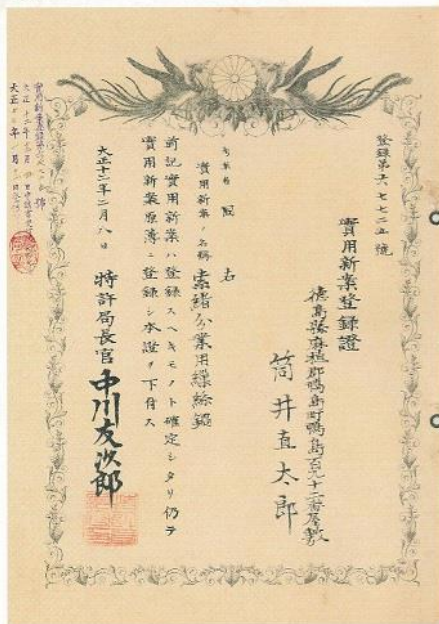 實用新案登録證
德島縣麻植郡鴨島町鴨島百九十二番屋敷
筒井直太郎
考案者 同 右
實用新案ノ名稱 索緒分業用繰絲鍋
前記實用新案ハ登録スヘキモノト確定シタリ仍テ
實用新案原簿ニ登録シ本證ヲ下付ス
大正十二年二月八日
特許局長官 中川友次郎